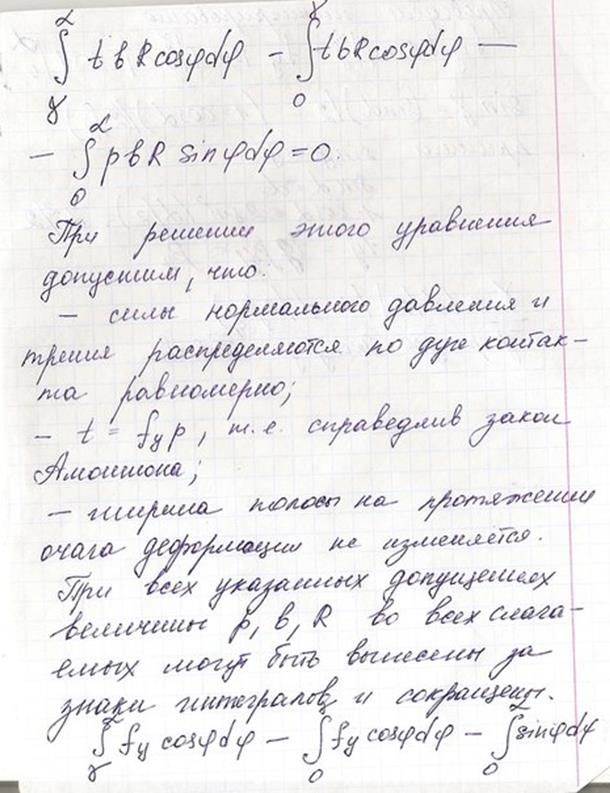 ∫_γ^α t b R cosφdφ − ∫_0^γ t b R cosφdφ −
− ∫_0^α p b R sinφdφ = 0
При решении этого уравнения
допустим, что.
– силы нормального давления и
трения распределяются по дуге контак-
та равномерно;
– t = f_y p, т.е. справедлив закон
Амонтона;
– ширина полосы на протяжении
очага деформации не изменяется.
При всех указанных допущениях
величины p, b, R во всех слага-
емых могут быть вынесены за
знаки интегралов и сокращены.
∫_γ^α f_y cosφdφ − ∫_0^γ f_y cosφdφ − ∫_0^α sinφdφ